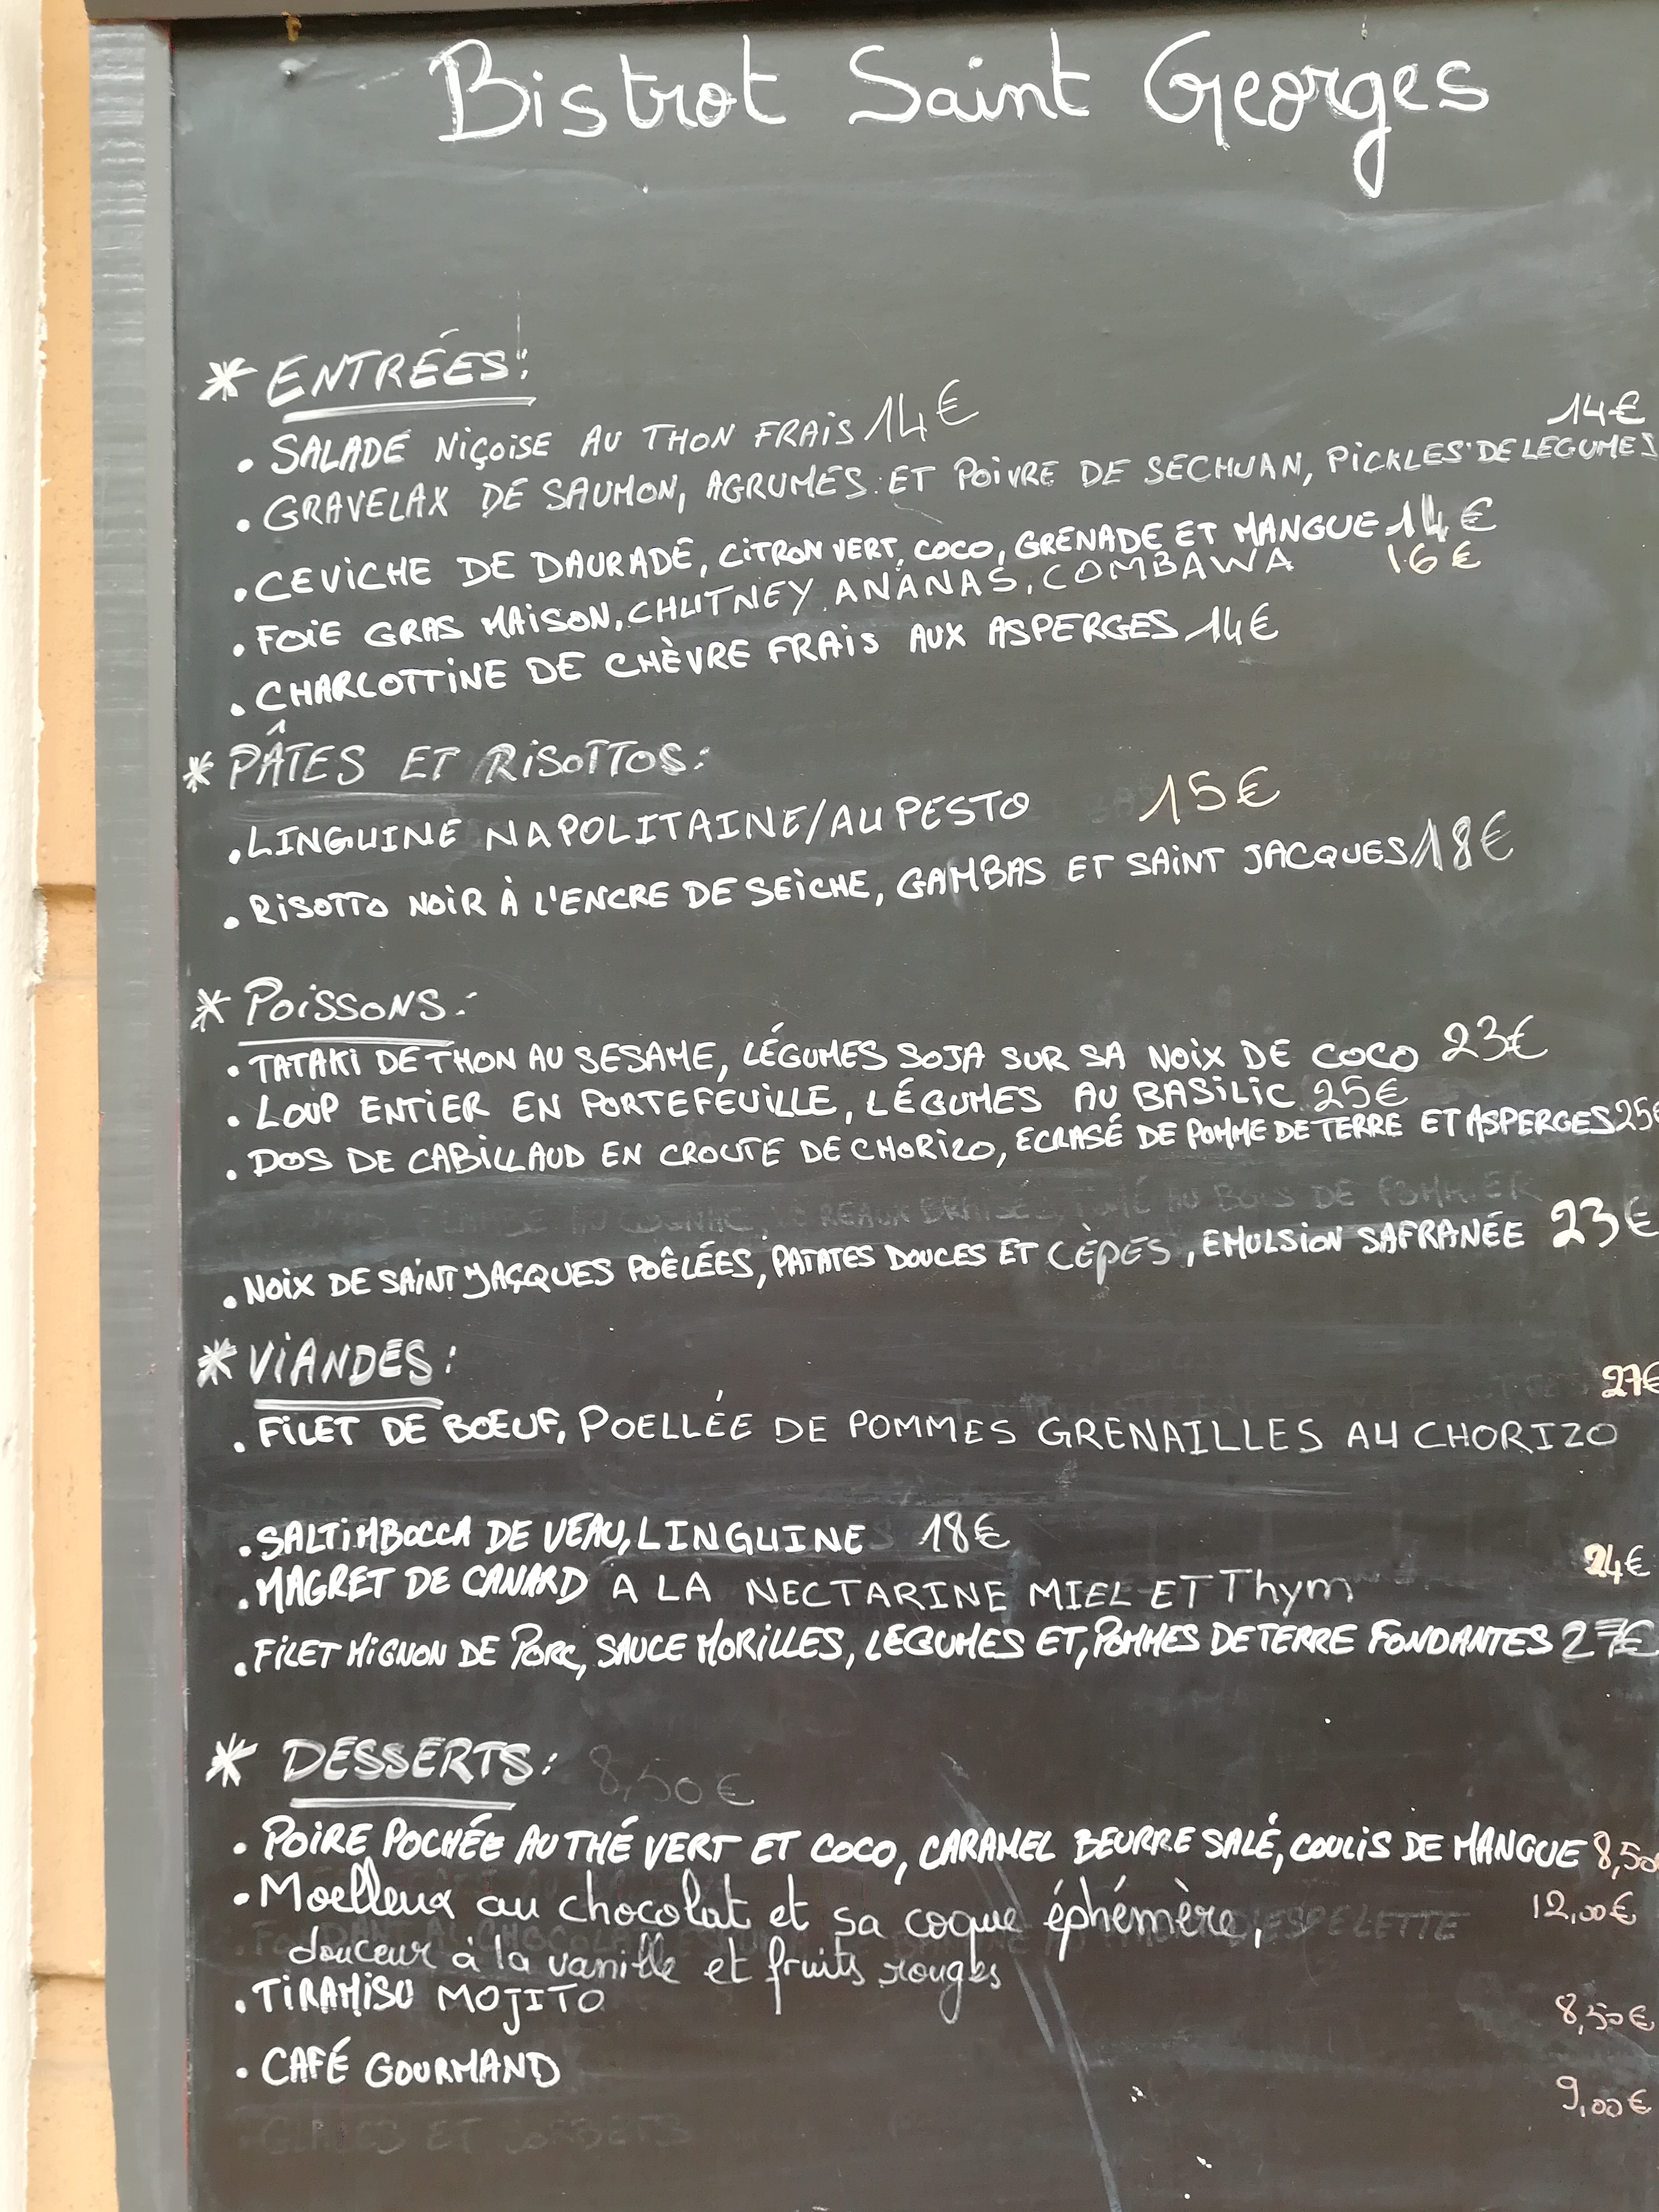 Bistrot Saint Georges
* ENTRÉES:
. SALADE NIÇOISE AU THON FRAIS 14€
14€
. GRAVELAX DE SAUMON, AGRUMES ET POIVRE DE SECHUAN, PICKLES DE LEGUMES
. CEVICHE DE DAURADE, CITRON VERT, COCO, GRENADE ET MANGUE 14€
. FOIE GRAS MAISON, CHUTNEY ANANAS, COMBAWA 16€
. CHARLOTTINE DE CHÈVRE FRAIS AUX ASPERGES 14€
* PÂTES ET RISOTTOS:
. LINGUINE NAPOLITAINE/AU PESTO 15€
. RISOTTO NOIR À L'ENCRE DE SEICHE, GAMBAS ET SAINT JACQUES 18€
* POISSONS:
. TATAKI DE THON AU SESAME, LÉGUMES SOJA SUR SA NOIX DE COCO 23€
. LOUP ENTIER EN PORTEFEUILLE, LÉGUMES AU BASILIC 25€
. DOS DE CABILLAUD EN CROUTE DE CHORIZO, ECRASÉ DE POMME DE TERRE ET ASPERGES 25€
AU COGNAC, AU BOIS DE POMMIER
. NOIX DE SAINT JACQUES POÊLÉES, PATATES DOUCES ET CÈPES, EMULSION SAFRANÉE 23€
* VIANDES:
27€
. FILET DE BOEUF, POELLÉE DE POMMES GRENAILLES AU CHORIZO
. SALTIMBOCCA DE VEAU, LINGUINE 18€
. MAGRET DE CANARD A LA NECTARINE MIEL ET Thym 24€
. FILET MIGNON DE PORC, SAUCE MORILLES, LEGUMES ET, POMMES DE TERRE FONDANTES 27€
* DESSERTS: 8,50€
. POIRE POCHÉE AU THÉ VERT ET COCO, CARAMEL BEURRE SALÉ, COULIS DE MANGUE 8,50
. Moelleux au chocolat et sa coque éphémère, 12,00€
D'ESPELETTE
douceur à la vanille et fruits rouges
. TIRAMISU MOJITO 8,50€
. CAFÉ GOURMAND 9,00€
. GLACES ET SORBETS